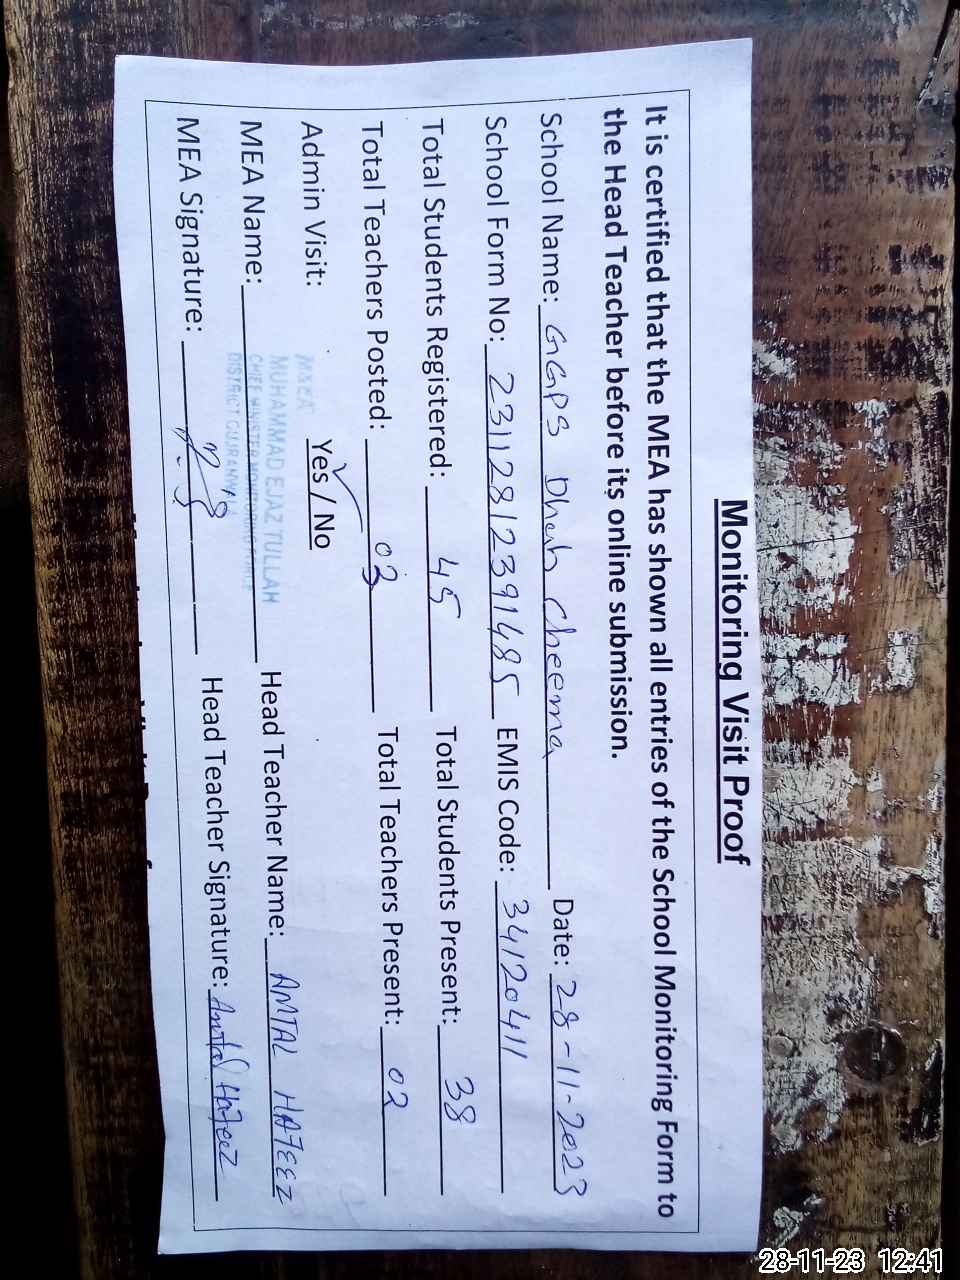 Monitoring Visit Proof
It is certified that the MEA has shown all entries of the School Monitoring Form to
the Head Teacher before its online submission.
School Name: GGPS Dhah Cheema Date: 28-11-2023
School Form No: 2311281239148S EMIS Code: 34120411
Total Students Registered: 45 Total Students Present: 38
Total Teachers Posted: 03 Total Teachers Present: 02
Admin Visit: Yes / No
MEA Name: MUHAMMAD EJAZ TULLAH Head Teacher Name: AMTAL HAFEEZ
CHIEF MINISTER MONITORING
DISTRICT GUJRANWALA
MEA Signature: Head Teacher Signature: Amtal Hafeez
28-11-23 12:41